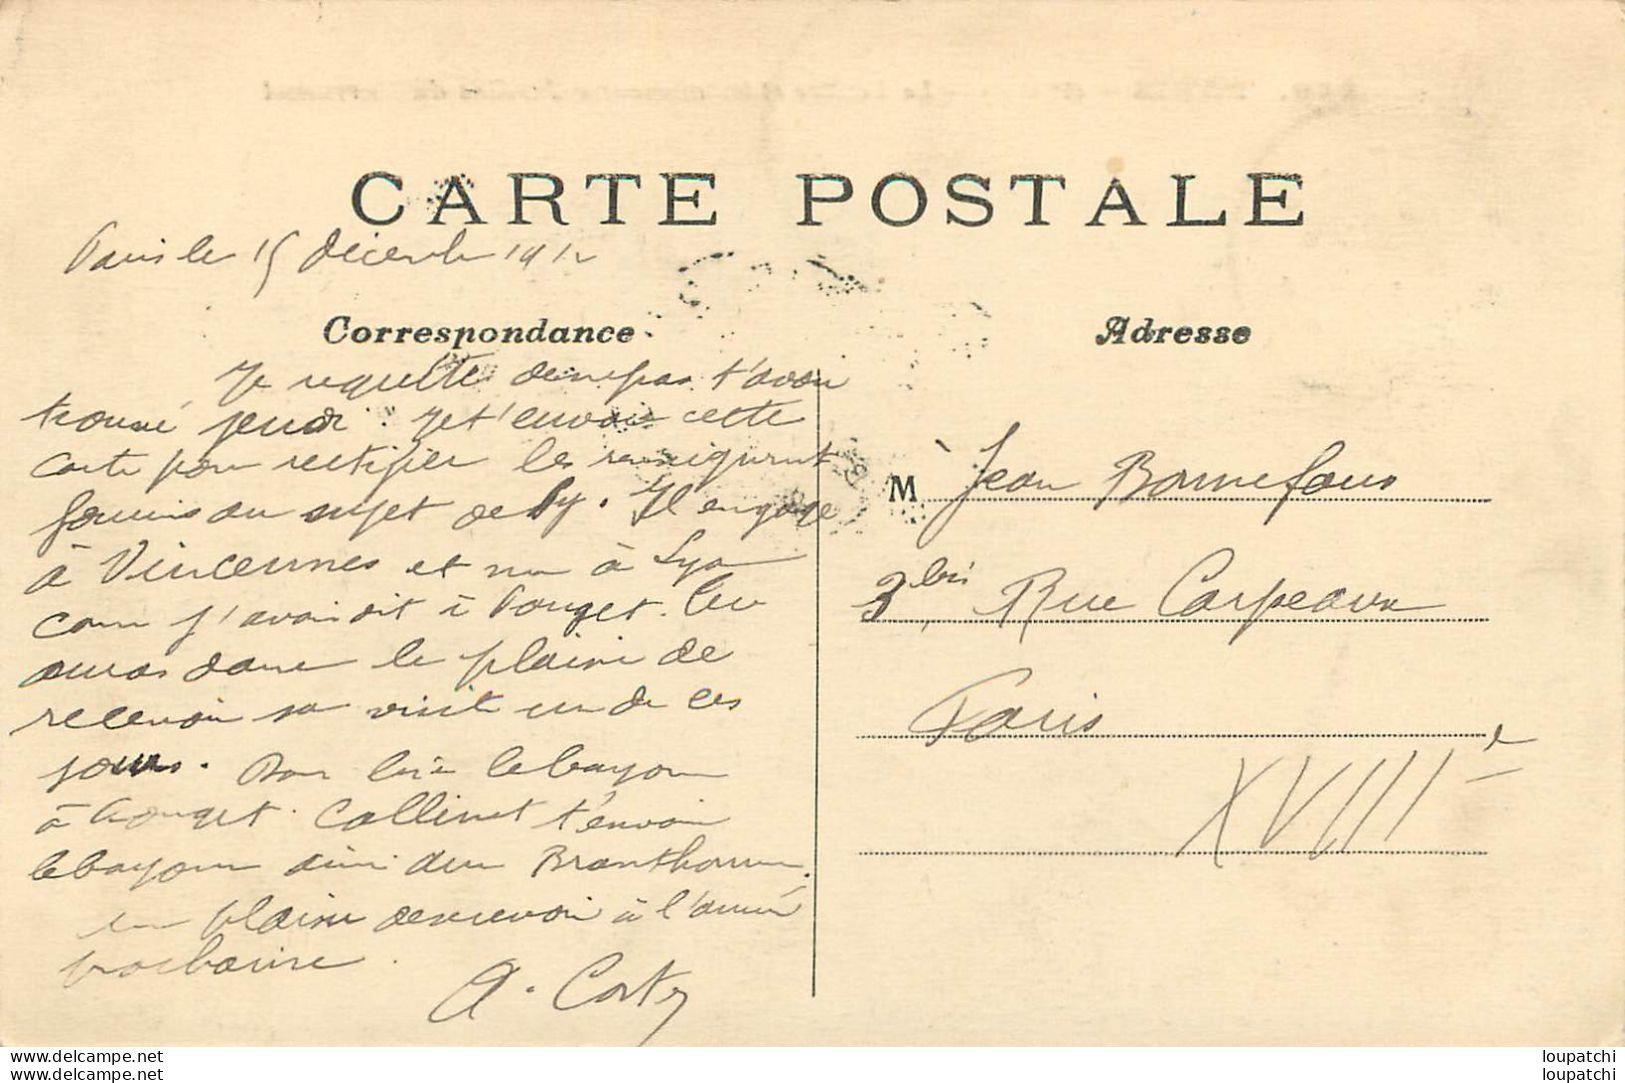 CARTE POSTALE
Paris le 15 décembre 1912
Correspondance
Adresse
Je regrette de ne pas t'avoir
trouvé jeudi. Je t'envoie cette
carte pour rectifier les renseignements
fournis au sujet de Py. Il engage
à Vincennes et non à Lyon
comme j'avais dit à Pouget. Tu
auras donc le plaisir de
recevoir sa visite un de ces
jours. Bon
à Pouget. Collinet t'envoie
ainsi que Branthomme.
au plaisir de se revoir à l'année
prochaine.
A. Corty
M
à Jean Bonnefous
3 bis, Rue Carpeaux
Paris
XVIIIe
www.delcampe.net
www.delcampe.net
loupatchi
loupatchi